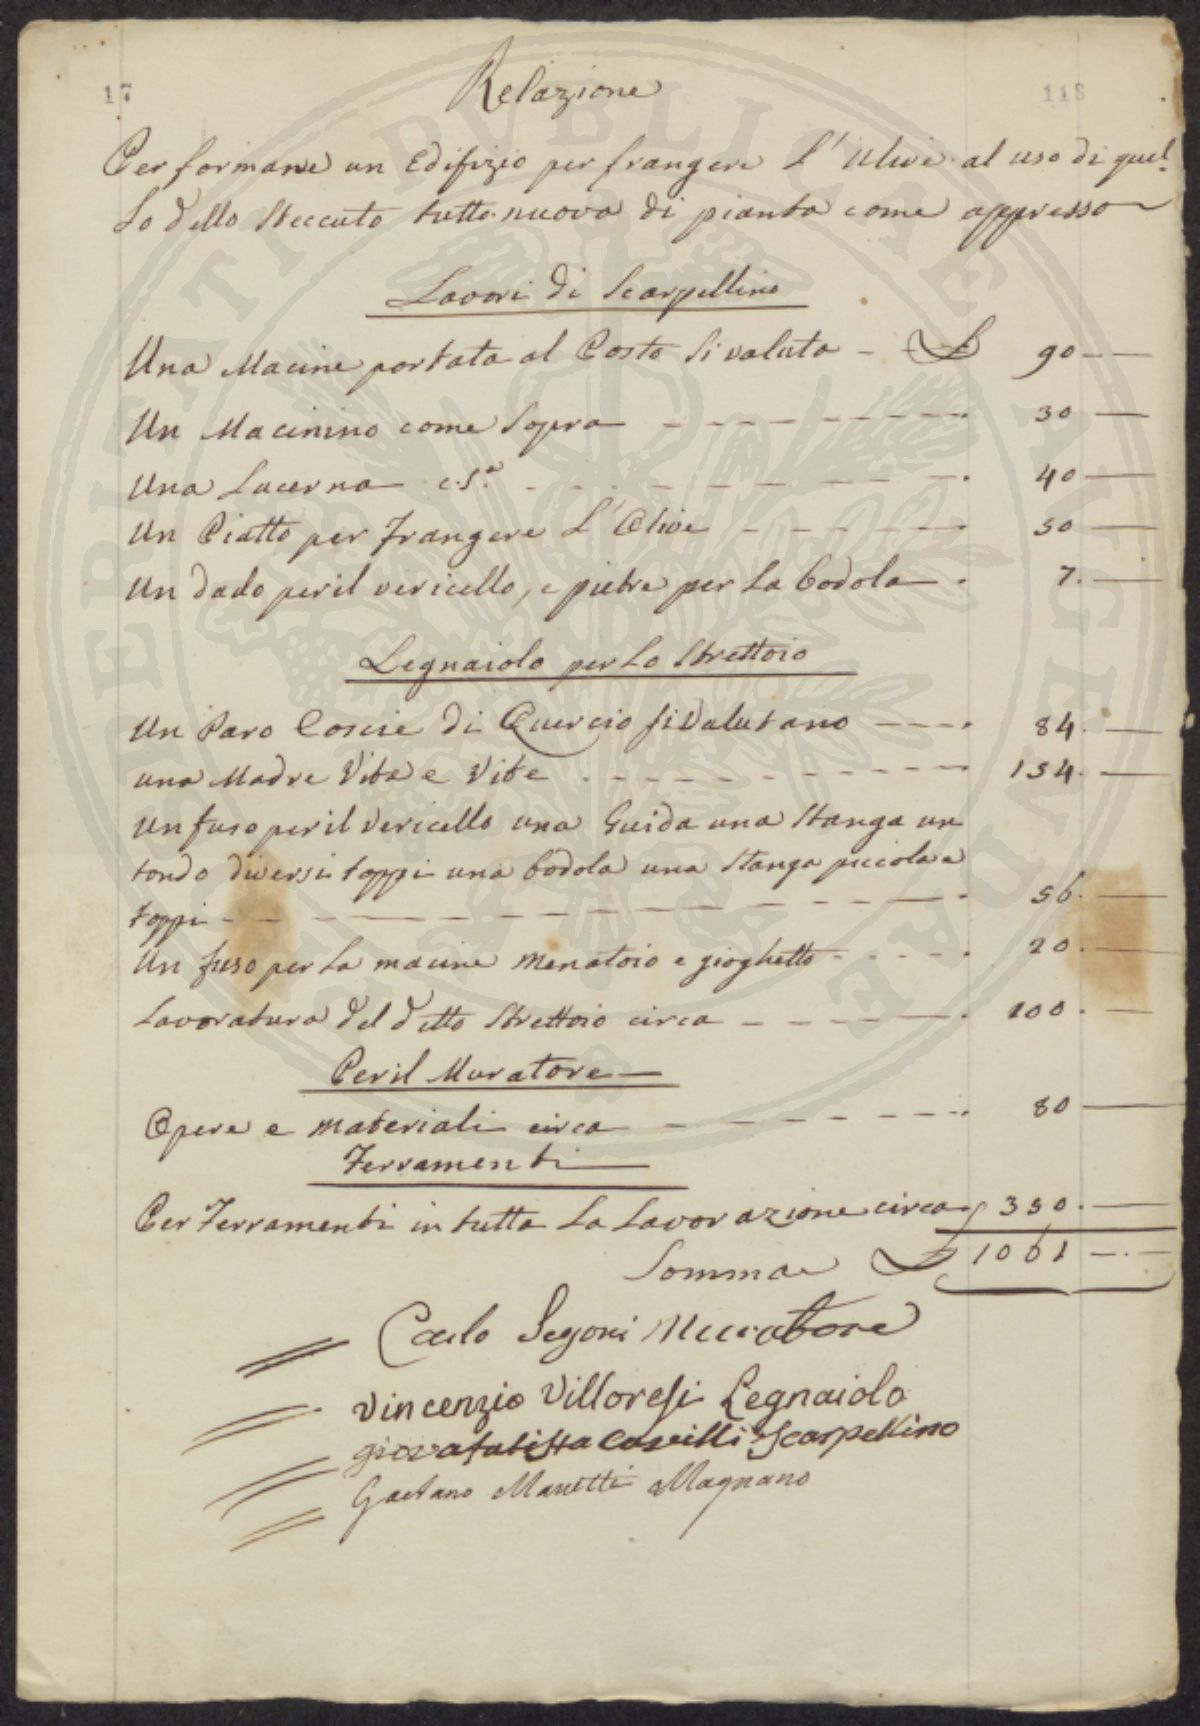 17
118
Relazione
Per formare un Edifizio per frangere L'Ulive al uso di quel-
Lo dello Steccuto tutto nuovo di pianta come appresso
Lavori di Scarpellino
Una Macine portata al Posto si valuta - £ 90 —
Un Macinino come Sopra - - - 30 —
Una Lucerna c.S.ª - - - 40 —
Un Piatto per frangere L'Olive - - - 50 —
Un dado per il vericello, e pietre per La bodola - 7. —
Legnaiolo per Lo Strettoio
Un Paro Coscie di Quercio si Valutano - - - 84. —
una Madre Vita e Vite - - - 154. —
Un fuso per il Vericello una Guida una Stanga un
tondo diversi toppi una bodola una Stanga piccola e
toppi - - - 56. —
Un fuso per la macine menatoio e gioghetto - - - 20. —
Lavoratura del detto Strettoio circa - - - 100. —
Per il Muratore
Opere e materiali circa - - - 80 —
Ferramenti
Per Ferramenti in tutta La Lavorazione circa 350. —
Somma £ 1061 —.—
Carlo Segoni Muratore
Vincenzio Villoresi Legnaiolo
Scarpellino
Gaetano Manetti Magnano
PUBLICAE